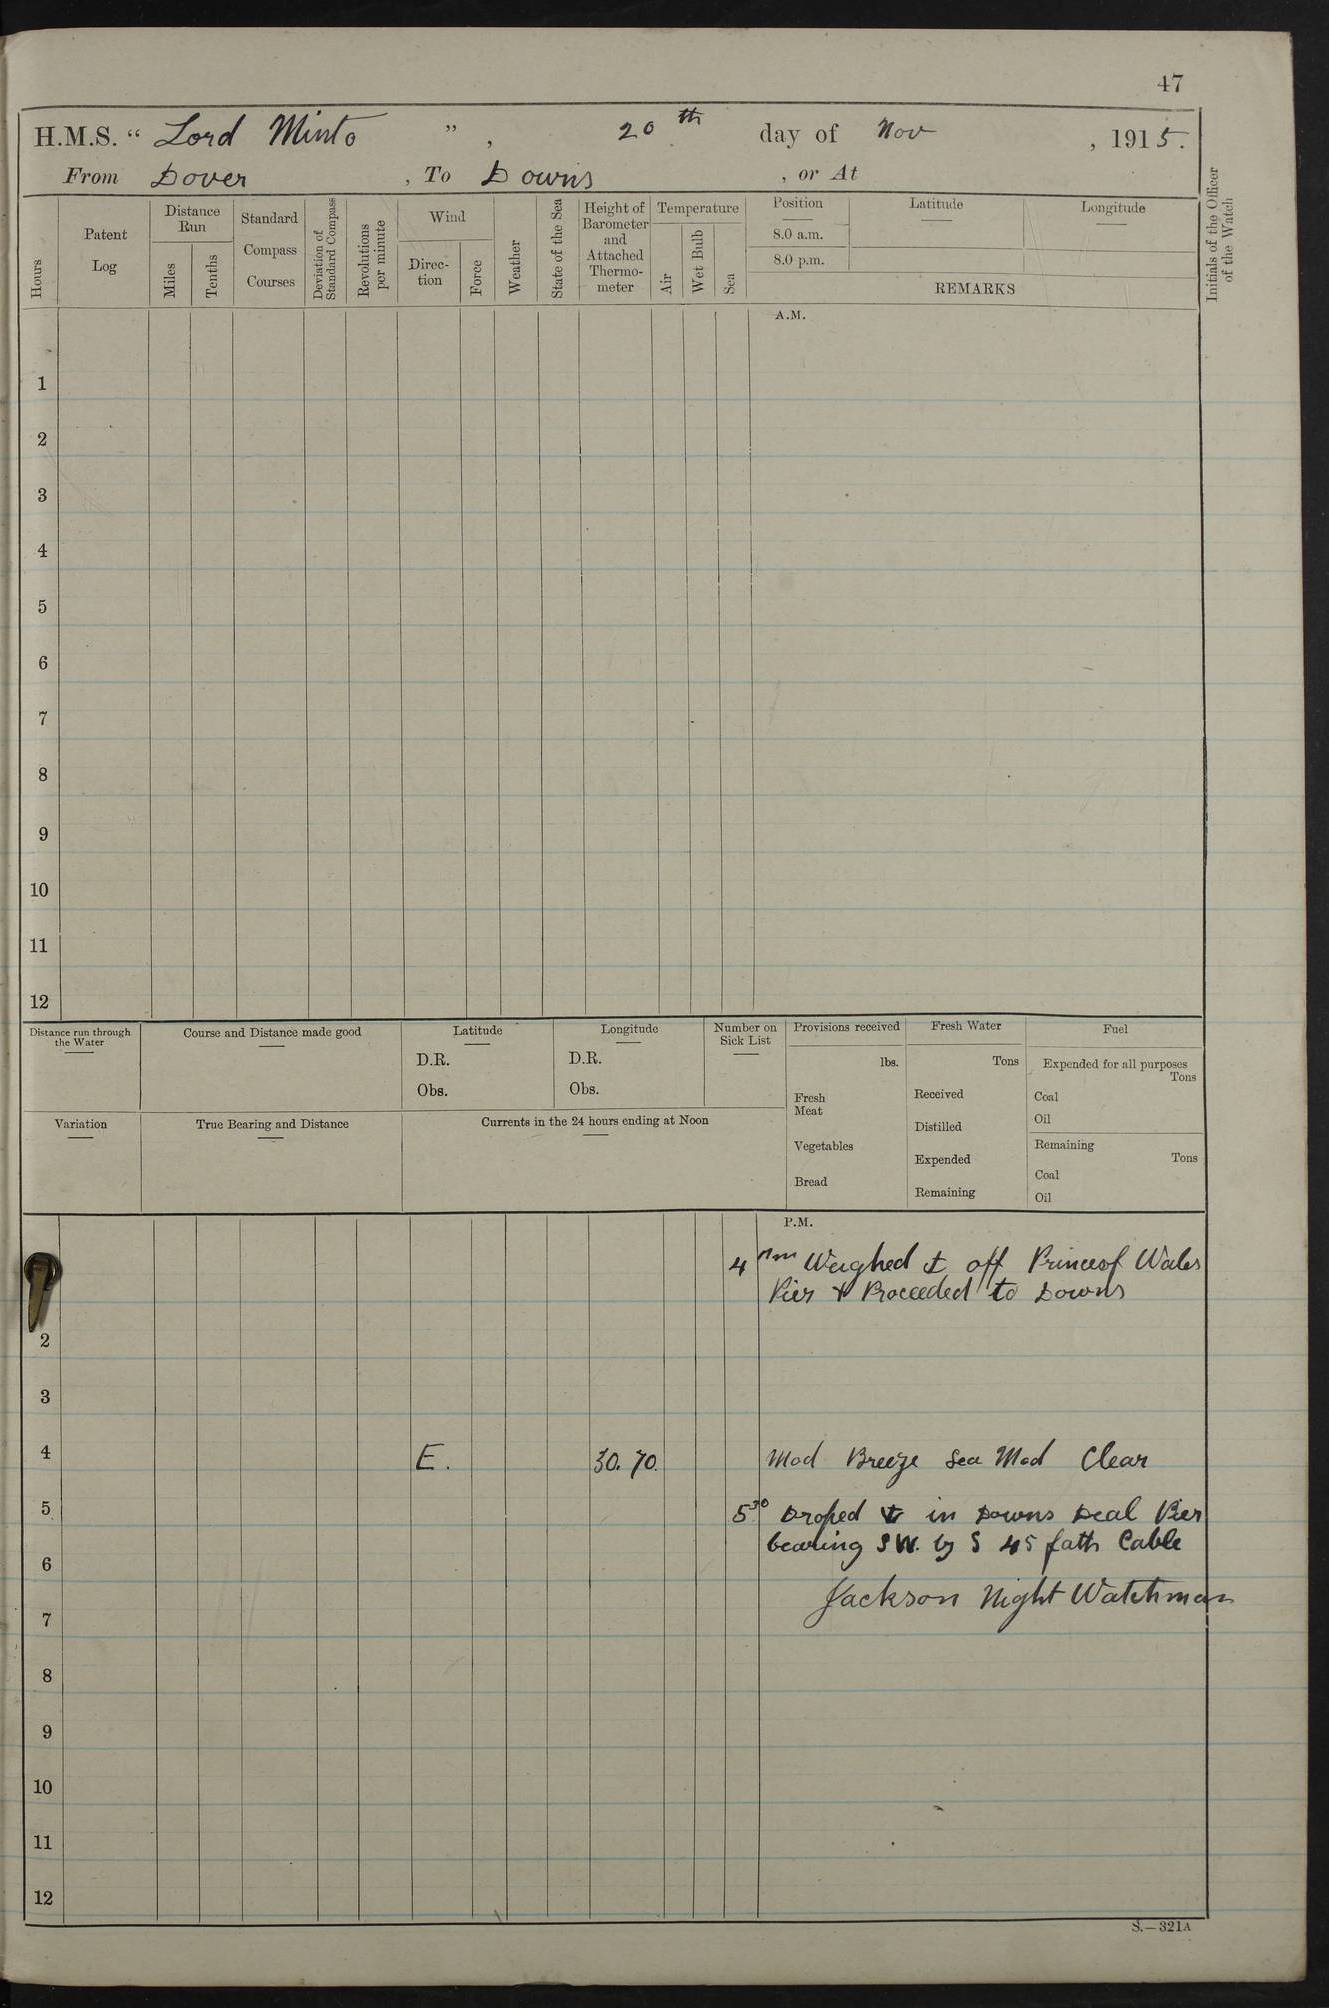 47
H.M.S. “ Lord Minto ”, 20th day of Nov , 1915.
From Dover , To Downs , or At
Hours
Patent
Log
Distance
Run
Miles
Tenths
Standard
Compass
Courses
Deviation of
Standard Compass
Revolutions
per minute
Wind
Direc-
tion
Force
Weather
State of the Sea
Height of
Barometer
and
Attached
Thermo-
meter
Temperature
Air
Wet Bulb
Sea
Position
8.0 a.m.
8.0 p.m.
Latitude
Longitude
REMARKS
Initials of the Officer
of the Watch
A.M.
1
2
3
4
5
6
7
8
9
10
11
12
Distance run through
the Water
Course and Distance made good
Latitude
D.R.
Obs.
Longitude
D.R.
Obs.
Number on
Sick List
Provisions received
lbs.
Fresh
Meat
Vegetables
Bread
Fresh Water
Tons
Received
Distilled
Expended
Remaining
Fuel
Expended for all purposes
Tons
Coal
Oil
Remaining
Tons
Coal
Oil
Variation
True Bearing and Distance
Currents in the 24 hours ending at Noon
P.M.
4 Weighed ⚓ off Prince of Wales
Pier & Proceeded to Downs
2
3
4 E. 30.70 Mod Breeze Sea Mod Clear
5 5 30 Droped ⚓ in Downs Deal Pier
bearing SW. by S 45 faths Cable
6
Jackson Night Watchman
7
8
9
10
11
12
S.—321A